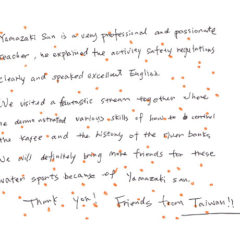 Yamazaki San is a very professional and passionate
teacher, he explained the activity safety regulations
clearly and speaked excellent English.
We visited a fantastic stream together where
he demonstrated various skills of how to control
the kayee and the history of the river banks.
We will definitely bring more friends for these
water sports because of Yamazaki san.
Thank you! Friends from Taiwan!!